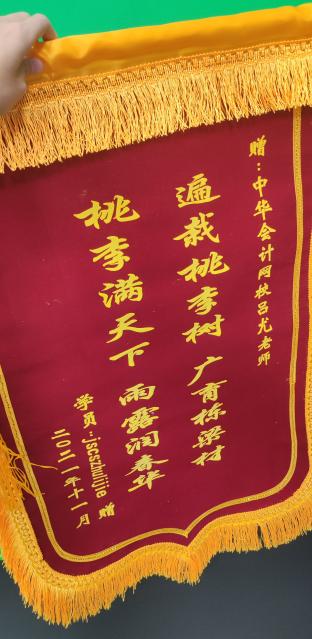 赠：中华会计网校吕尤老师
遍栽桃李树 广育栋梁材
桃李满天下 雨露润春华
学员：jscszhulijie 赠
二〇二一年十一月